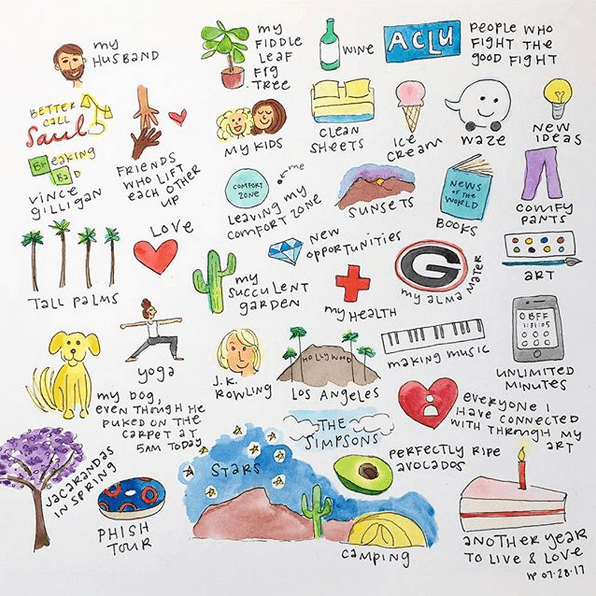 my
HUSBAND
my
FIDDLE
LEAF
FIG
TREE
WINE
ACLU
PEOPLE WHO
FIGHT THE
GOOD FIGHT
BETTER
CALL
Saul
FRIENDS
WHO LIFT
EACH OTHER
UP
MY KIDS
CLEAN
SHEETS
ICE
CREAM
WAZE
NEW
IDEAS
BrEAKiNg
BaD
VINCE
gILLIGAN
COMFORT
ZONE
me
LEAVING MY
COMFORT ZONE
SUNSETS
NEWS
OF THE
WORLD
BOOKS
COMFY
PANTS
TALL PALMS
LOVE
my
SUCCULENT
GARDEN
NEW
OPPORTUNITIES
my HEALTH
G
my ALMA MATER
ART
yoga
J.K.
ROWLING
HOLLYWOOD
LOS ANGELES
MAKING MUSIC
OBFF
1:31:05
UNLIMITED
MINUTES
my DOG,
EVEN THOUGH HE
PUKED ON THE
CARPET AT
5AM TODAY
EVERYONE I
HAVE CONNECTED
WITH THROUGH MY
ART
JACARANDAS
IN SPRING
PHISH
TOUR
STARS
THE
SIMPSONS
PERFECTLY RIPE
AVOCADOS
CAMPING
ANOTHER YEAR
TO LIVE & LOVE
07.28.17